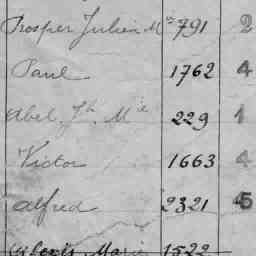 Prosper Julien Mie 791 2
Paul 1762 4
Abel Jh Mie 229 1
Victor 1663 4
Alfred 2321 45
Alexis Marie 1522